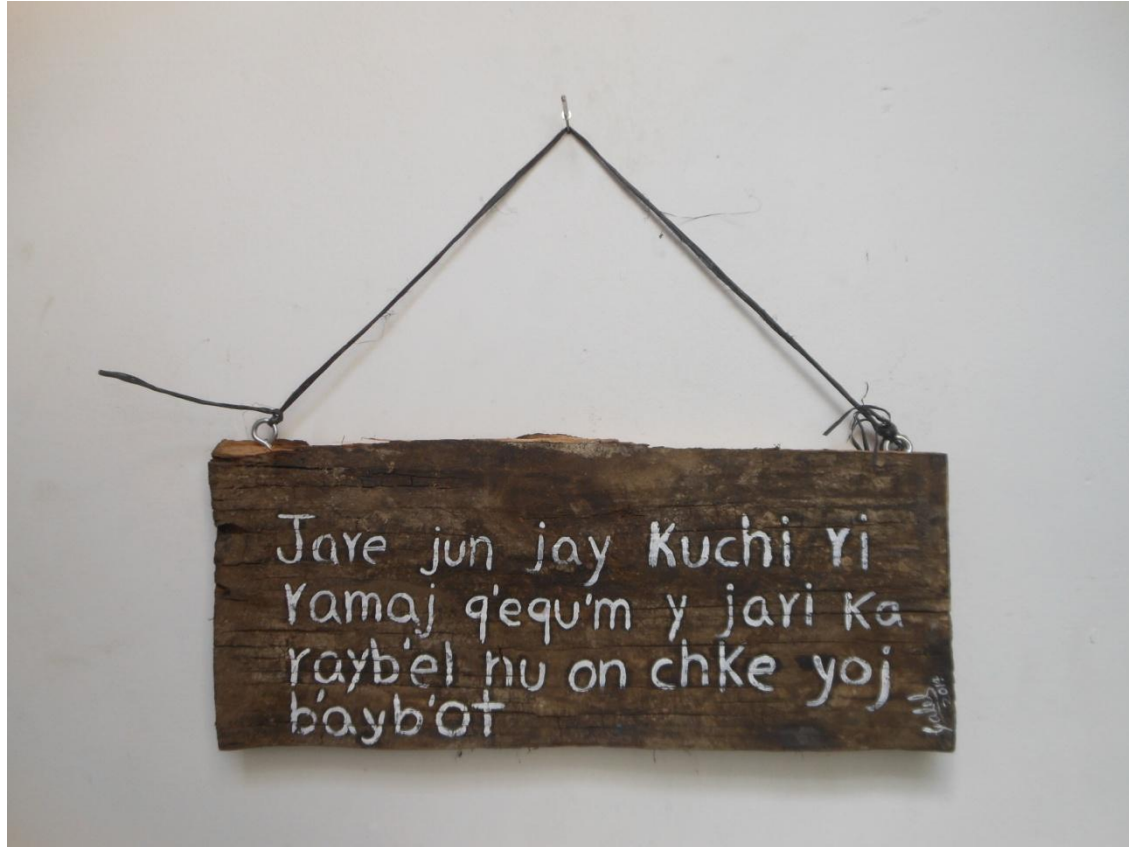 Jare jun jay Kuchi ri
ramaj q'equ'm y jari Ka
rayb'el nu on chke yoj
b'ayb'ot
2014